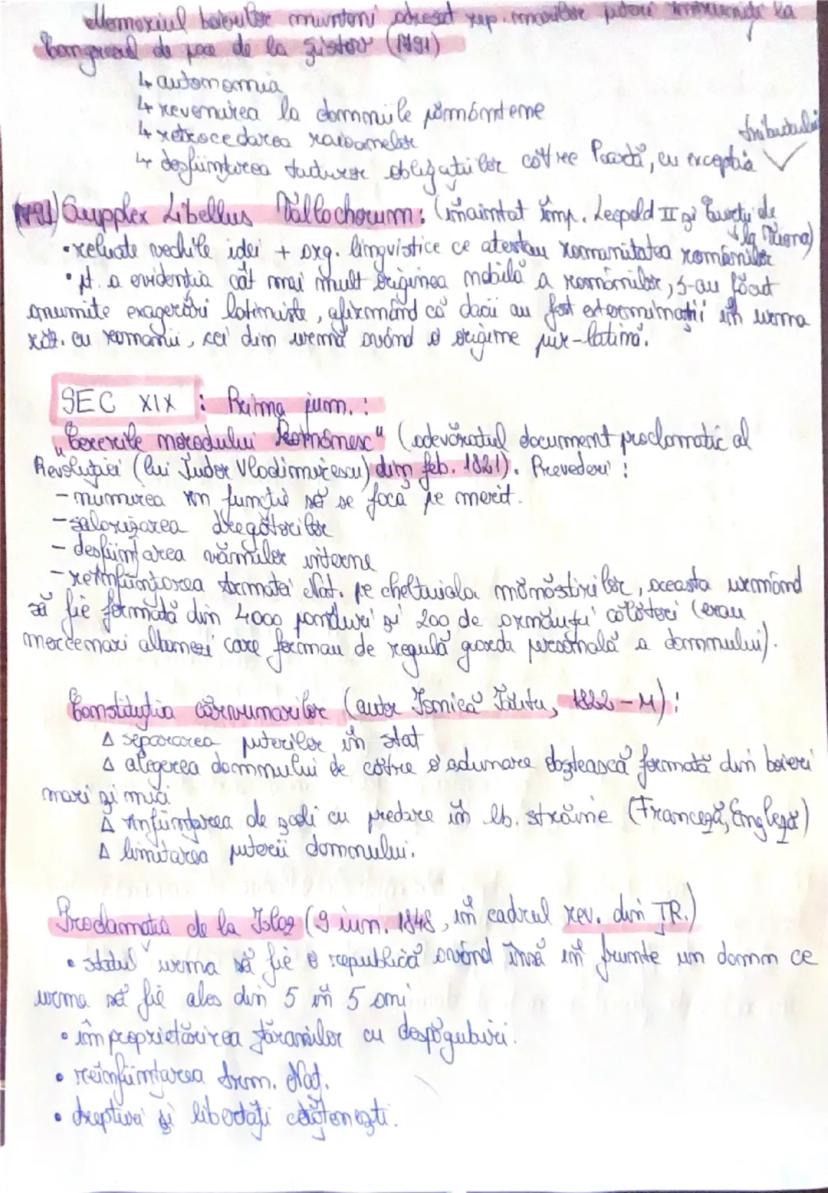 Memoriul boierilor munteni adresat rep. marilor puteri întrunite la
Congresul de pace de la Șiștov (1791)
↳ autonomia
↳ revenirea la domniile pământene
↳ retrocedarea raioanelor
↳ desființarea tuturor obligațiilor către Poartă, cu excepția tributului
(1791) Supplex Libellus Valachorum: (înaintat împ. Leopold II și Curții de la Viena)
• reluate vechile idei + arg. lingvistice ce atestau romanitatea românilor
• pt. a evidenția cât mai mult originea nobilă a românilor, s-au făcut
anumite exagerări latiniste, afirmând că dacii au fost exterminați în urma
răz. cu romanii, cei din urmă având o origine pur-latină.
SEC XIX : Prima jum. :
"Cererile norodului Românesc" (adevăratul document proclamatic al
Revoluției (lui Tudor Vladimirescu) din feb. 1821). Prevederi :
- numirea în funcții să se facă pe merit.
- salarizarea dregătorilor
- desființarea vămilor interne
- reînființarea Armatei Nat. pe cheltuiala mănăstirilor, aceasta urmând
să fie formată din 4000 panduri și 200 de arnăuți călători (erau
mercenari albanezi care formau de regulă garda personală a domnului).
Constituția cărvunarilor (autor Ionică Tăutu, 1822 - M) :
Δ separarea puterilor în stat
Δ alegerea domnului de către o adunare obștească formată din boieri
mari și mici
Δ înființarea de școli cu predare în lb. străine (Franceză, Engleză)
Δ limitarea puterii domnului.
Proclamația de la Islaz (9 iun. 1848, în cadrul rev. din ȚR.)
• statul urma să fie o republică având însă în frunte un domn ce
urma să fie ales din 5 în 5 ani
• împroprietărirea țăranilor cu despăgubiri.
• reînființarea Arm. Nat.
• drepturi și libertăți cetățenești.